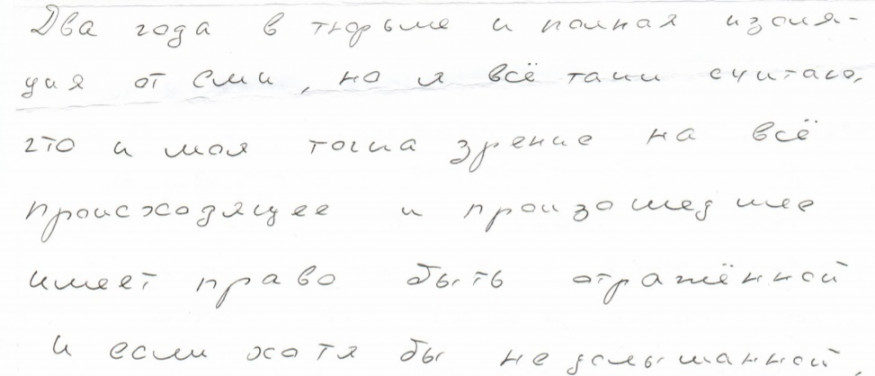 Два года в тюрьме и полная изоля-
ция от СМИ, но я всё таки считаю,
что и моя точка зрение на всё
происходящее и произошедшее
имеет право быть отражённой
и если хотя бы не услышанной,